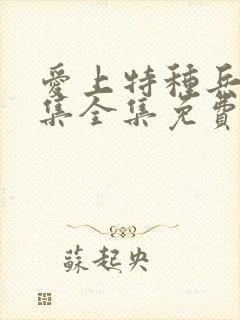 愛上特種兵
集全集免費
蘇起央